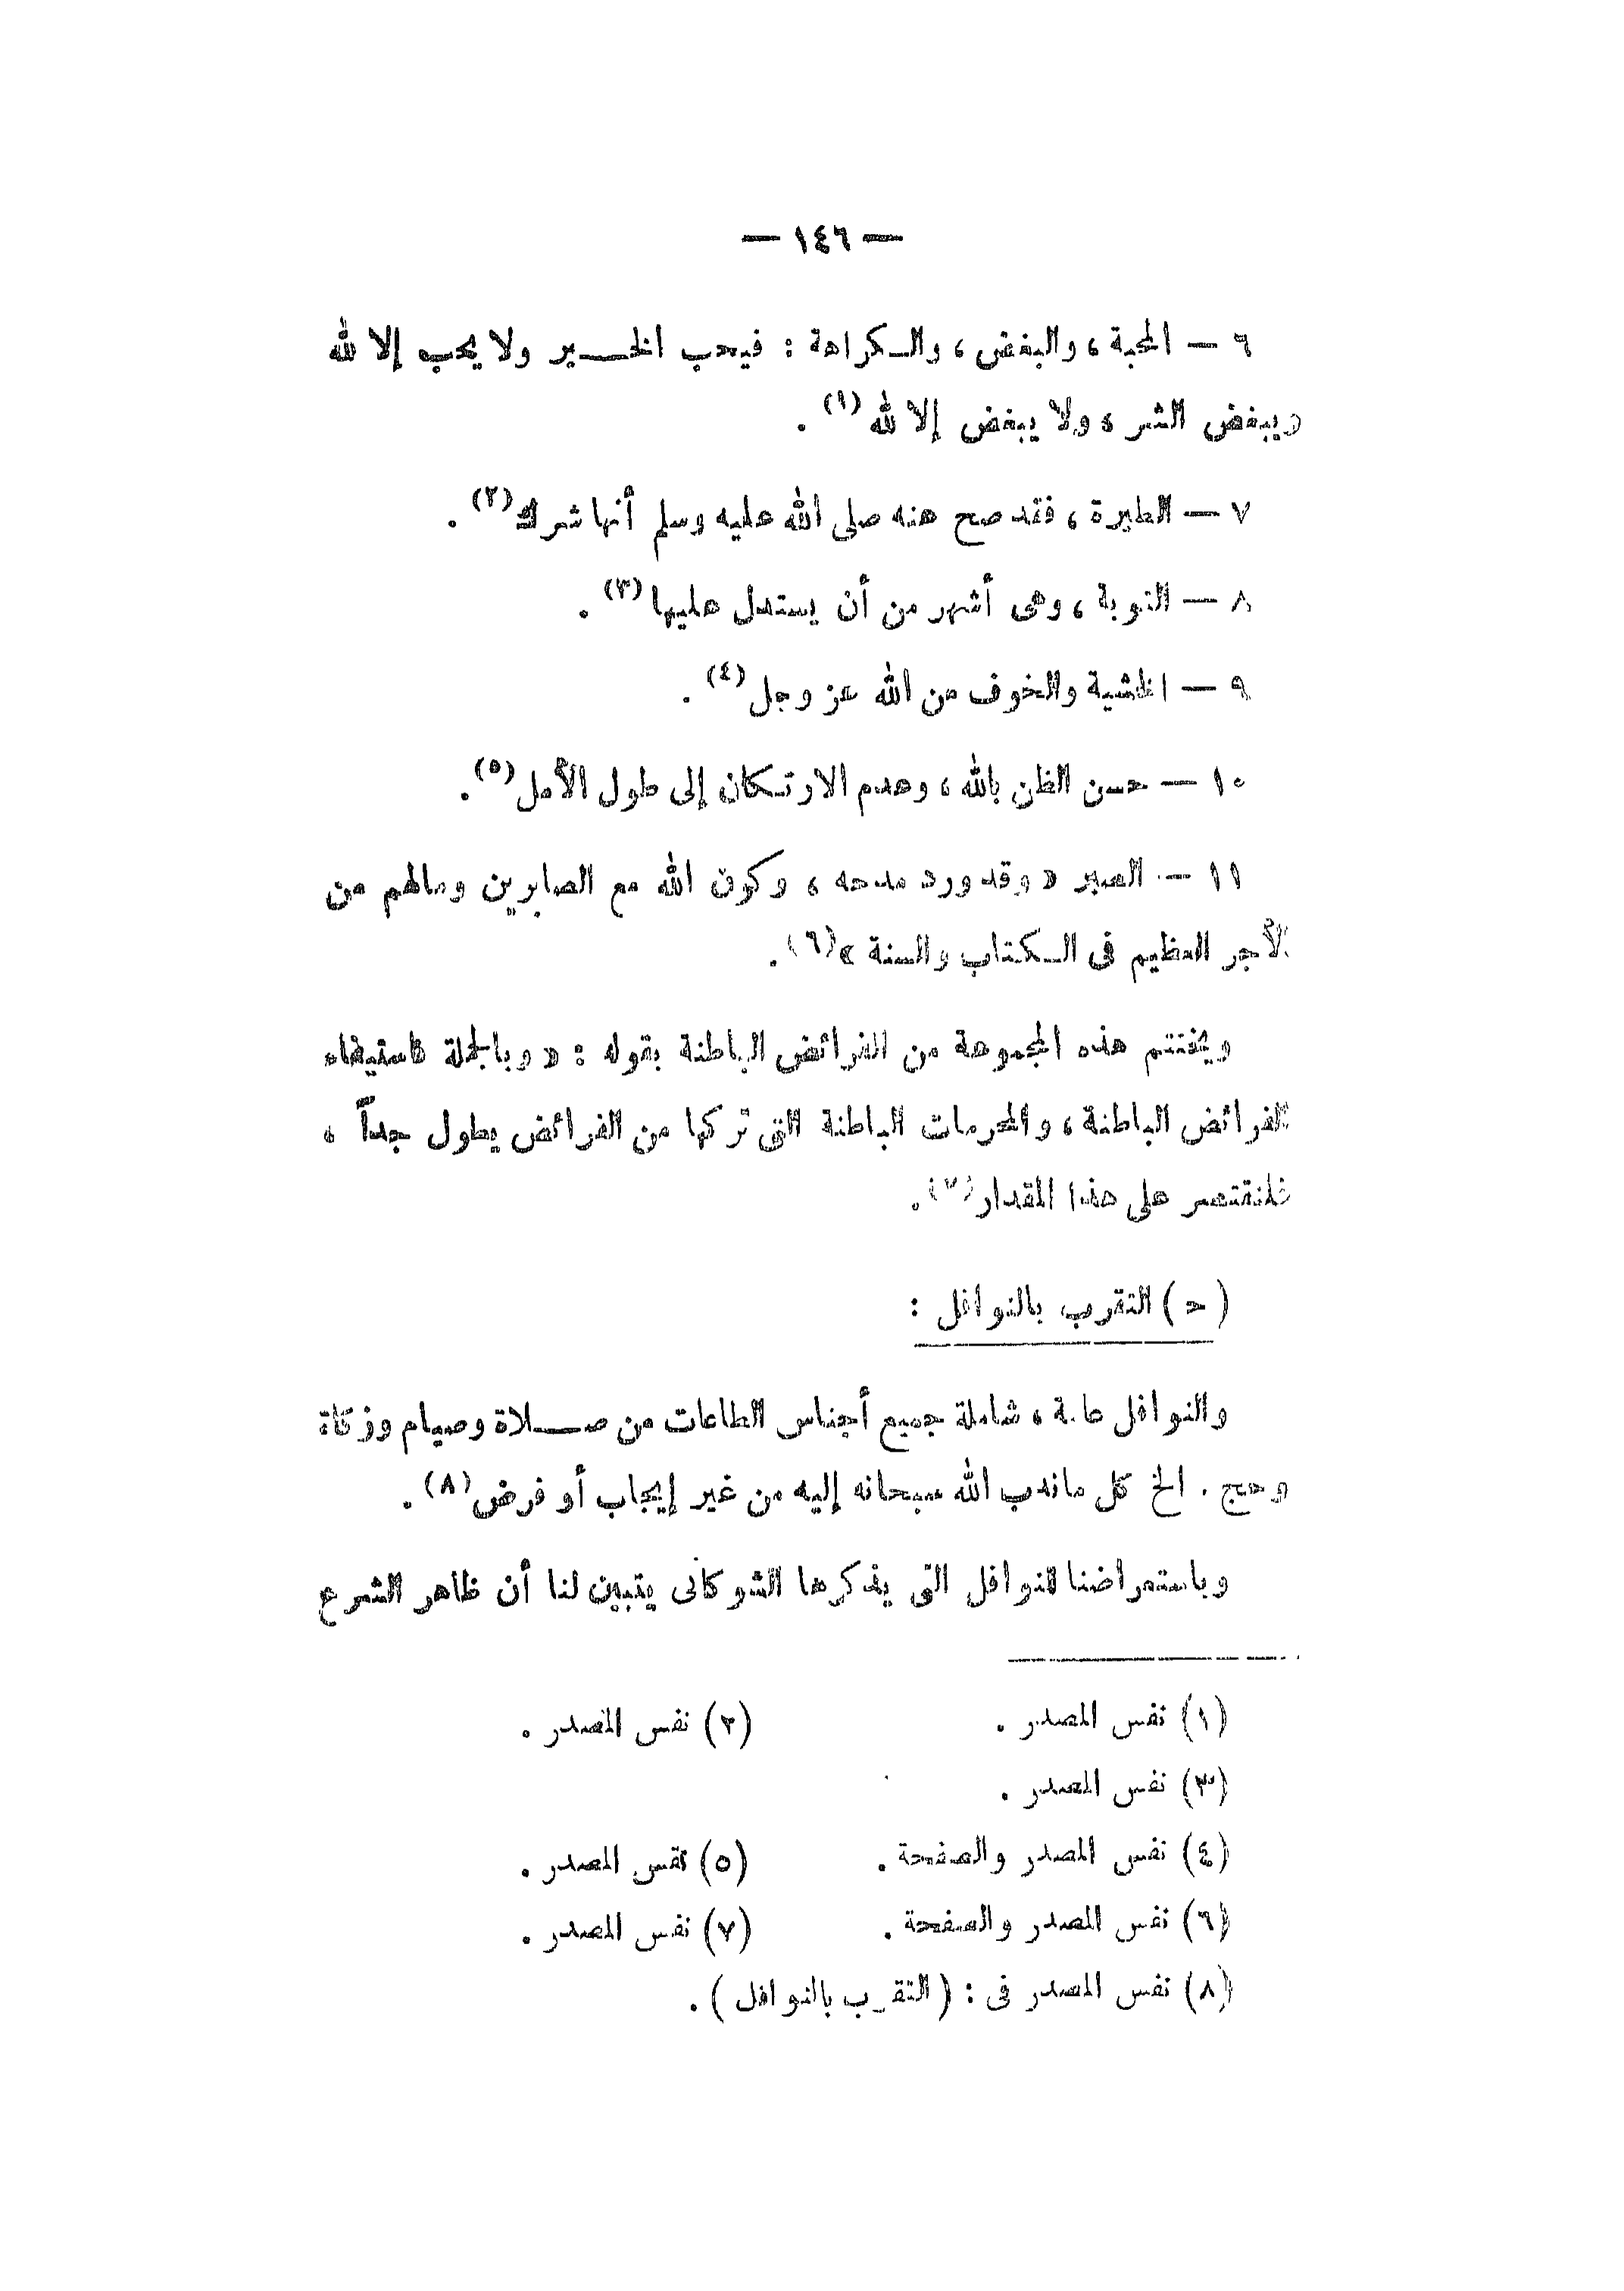 — ١٤٦ —
٦ — المحبة ، والبغض ، والكراهة : فيحب الخير ولا يحب إلا لله
ويبغض الشر ، ولا يبغض إلا لله (١) .
٧ — الطيرة ، فقد صح عنه صلى الله عليه وسلم أنها شرك (٢) .
٨ — التوبة ، وهى أشهر من أن يستدل عليها (٣) .
٩ — الخشية والخوف من الله عز وجل (٤) .
١٠ — حسن الظن بالله ، وعدم الارتكان إلى طول الأمل (٥) .
١١ — الصبر « وقد ورد مدحه ، وكون الله مع الصابرين وما لهم من
الأجر العظيم فى الكتاب والسنة » (٦) .
ويختتم هذه المجموعة من الفرائض الباطنة بقوله : « وبالجملة فاستيفاء
الفرائض الباطنة ، والمحرمات الباطنة التى تركها من الفرائض يطول جداً ،
فلنقتصر على هذا المقدار (٧) .
( ح ) التقرب بالنوافل :
والنوافل عامة ، شاملة جميع أجناس الطاعات من صلاة وصيام وزكاة
وحج . الخ كل ما ندب الله سبحانه إليه من غير إيجاب أو فرض (٨) .
وباستعراضنا للنوافل التى يذكرها الشوكانى يتبين لنا أن ظاهر الشرع
(١) نفس المصدر . (٢) نفس المصدر .
(٣) نفس المصدر .
(٤) نفس المصدر والصفحة . (٥) نفس المصدر .
(٦) نفس المصدر والصفحة . (٧) نفس المصدر .
(٨) نفس المصدر فى : ( التقرب بالنوافل ) .